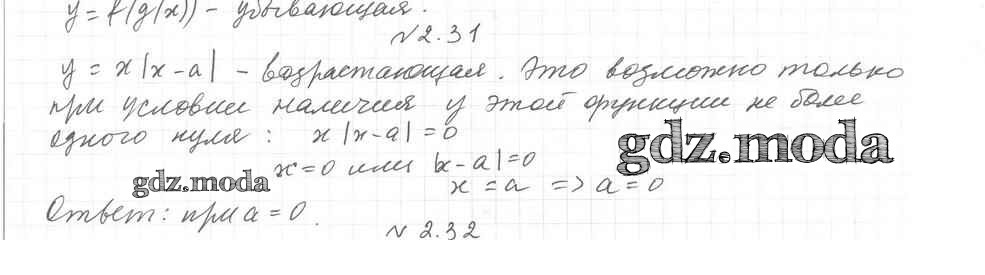 y = f(g(x)) - убывающая.
№2.31
y = x|x-a| - возрастающая. Это возможно только
при условии наличия у этой функции не более
одного нуля: x|x-a| = 0
gdz.moda
x=0 или |x-a|=0
gdz.moda
x = a => a=0
Ответ: при a=0.
№2.32